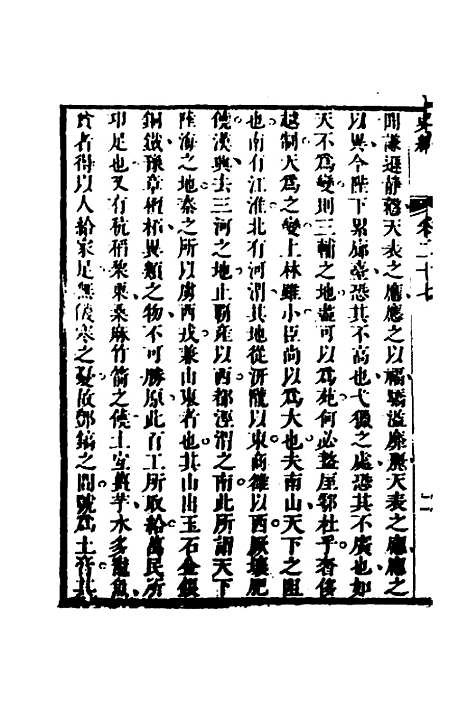 聞謙遜靜慤天表之應應之以福驕溢靡麗天表之應應之
以異今陛下累郎臺恐其不高也弋獵之處恐其不廣也如
天不為變則三輔之地盡可以為苑何必盩厔鄠杜乎奢侈
越制天為之變上林雖小臣尚以為大也夫南山天下之阻
也南有江淮北有河渭其地從汧隴以東商雒以西厥壤肥
饒漢興去三河之地止霸產以西都涇渭之南此所謂天下
陸海之地秦之所以虜西戎兼山東者也其山出玉石金銀
銅鐵豫章檀柘異類之物不可勝原此百工所取給萬民所
卬足也又有秔稻棃栗桑麻竹箭之饒土宜薑芋水多鼃魚
貧者得以人給家足無饑寒之憂故酆鎬之間號為土膏其
卷二十七
二